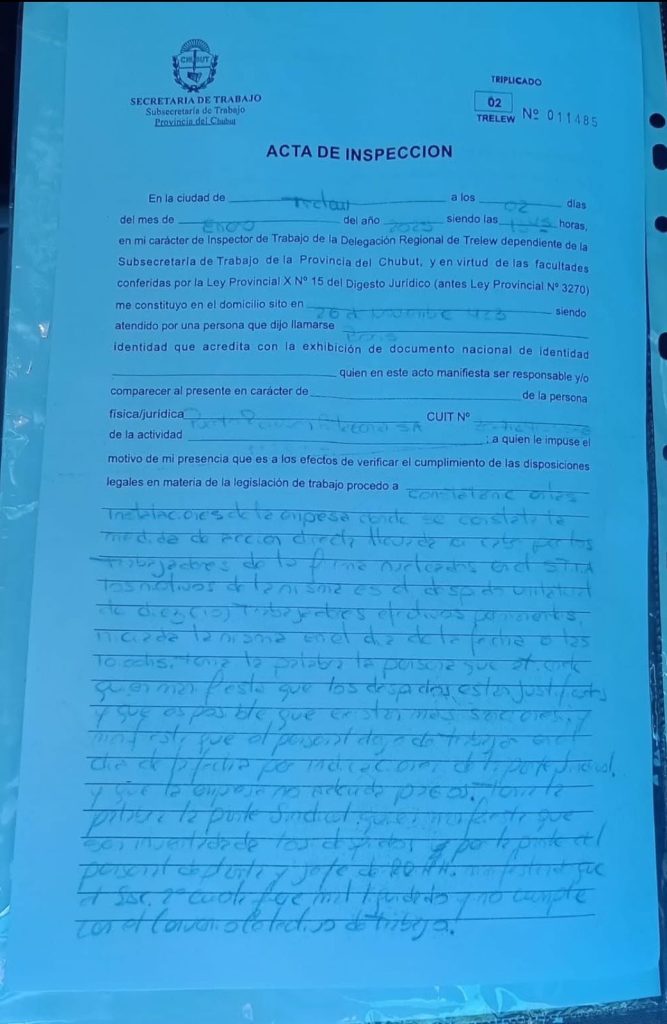 CHUBUT
SECRETARIA DE TRABAJO
Subsecretaría de Trabajo
Provincia del Chubut
TRIPLICADO
02
TRELEW Nº 011485
ACTA DE INSPECCION
En la ciudad de Trelew a los 02 días
del mes de Enero del año 2025 siendo las horas,
en mi carácter de Inspector de Trabajo de la Delegación Regional de Trelew dependiente de la
Subsecretaría de Trabajo de la Provincia del Chubut, y en virtud de las facultades
conferidas por la Ley Provincial X Nº 15 del Digesto Jurídico (antes Ley Provincial Nº 3270)
me constituyo en el domicilio sito en siendo
atendido por una persona que dijo llamarse
identidad que acredita con la exhibición de documento nacional de identidad
quien en este acto manifiesta ser responsable y/o
comparecer al presente en carácter de de la persona
física/jurídica SA CUIT Nº
de la actividad ; a quien le impuse el
motivo de mi presencia que es a los efectos de verificar el cumplimiento de las disposiciones
legales en materia de la legislación de trabajo procedo a
Instalaciones de la empresa donde se constata la
medida de accion directa llevada a cabo por los
trabajadores de la firma nucleados en el
los motivos de la misma es el despido
de diez (10) trabajadores efectivos permanentes,
iniciada la misma en el dia de la fecha a las
toma la palabra la persona que atiende
quien manifiesta que los despidos estan justificados
y que es posible que existan mas y
manifiesta que el personal dejo de trabajar en el
dia de la fecha por indicaciones de la parte sindical,
y que la empresa no adeuda pagos. Toma la
palabra la parte Sindical quien manifiesta que
los despidos y por la parte del
personal de planta y jefe de RRHH. que
el Sac. 2º cuota fue mal liquidado y no cumple
con el Convenio Colectivo de Trabajo.